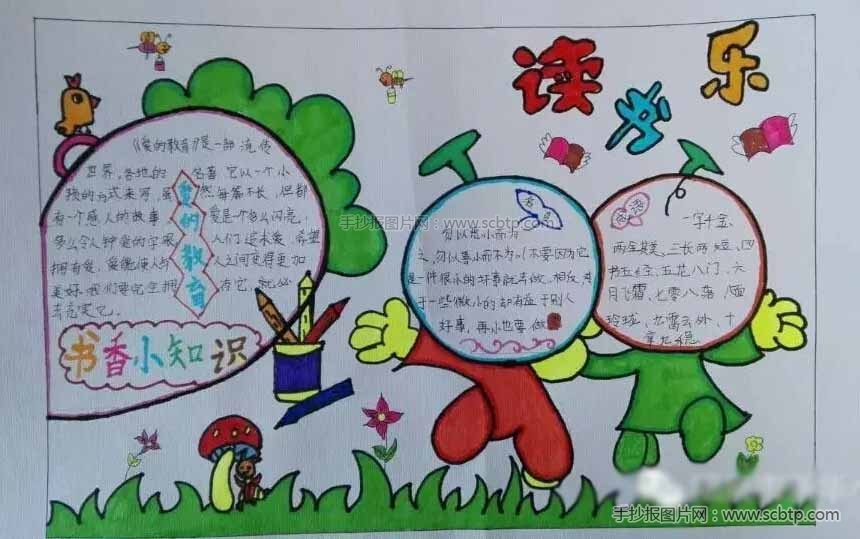 读书乐
《爱的教育》是一部流传
世界各地的 名著,它以一个小
孩的 式来写,虽 然每篇不长,但都
有一个感人的故事 爱是个多么闪亮,
多么令人钟爱的字眼 人们追求爱,希望
拥有爱,爱能使人与 人之间变得更加
美好,我们要完全拥 有它,就必
去充实它。
爱的教育
书香小知识
名言
勿以恶小而为
之,勿以善小而不为。不要因为它
是一件很小的坏事就去做,相反,对
于一些微小的却有益于别人
好事,再小也要做
成语
一字千金、
两全其美、三长两短、四
书五经、五花八门、六
月飞霜、七零八落、八面
玲珑、九霄云外、十
拿九稳
手抄报图片网:www.scbtp.com
手抄报图片网:www.scbtp.com